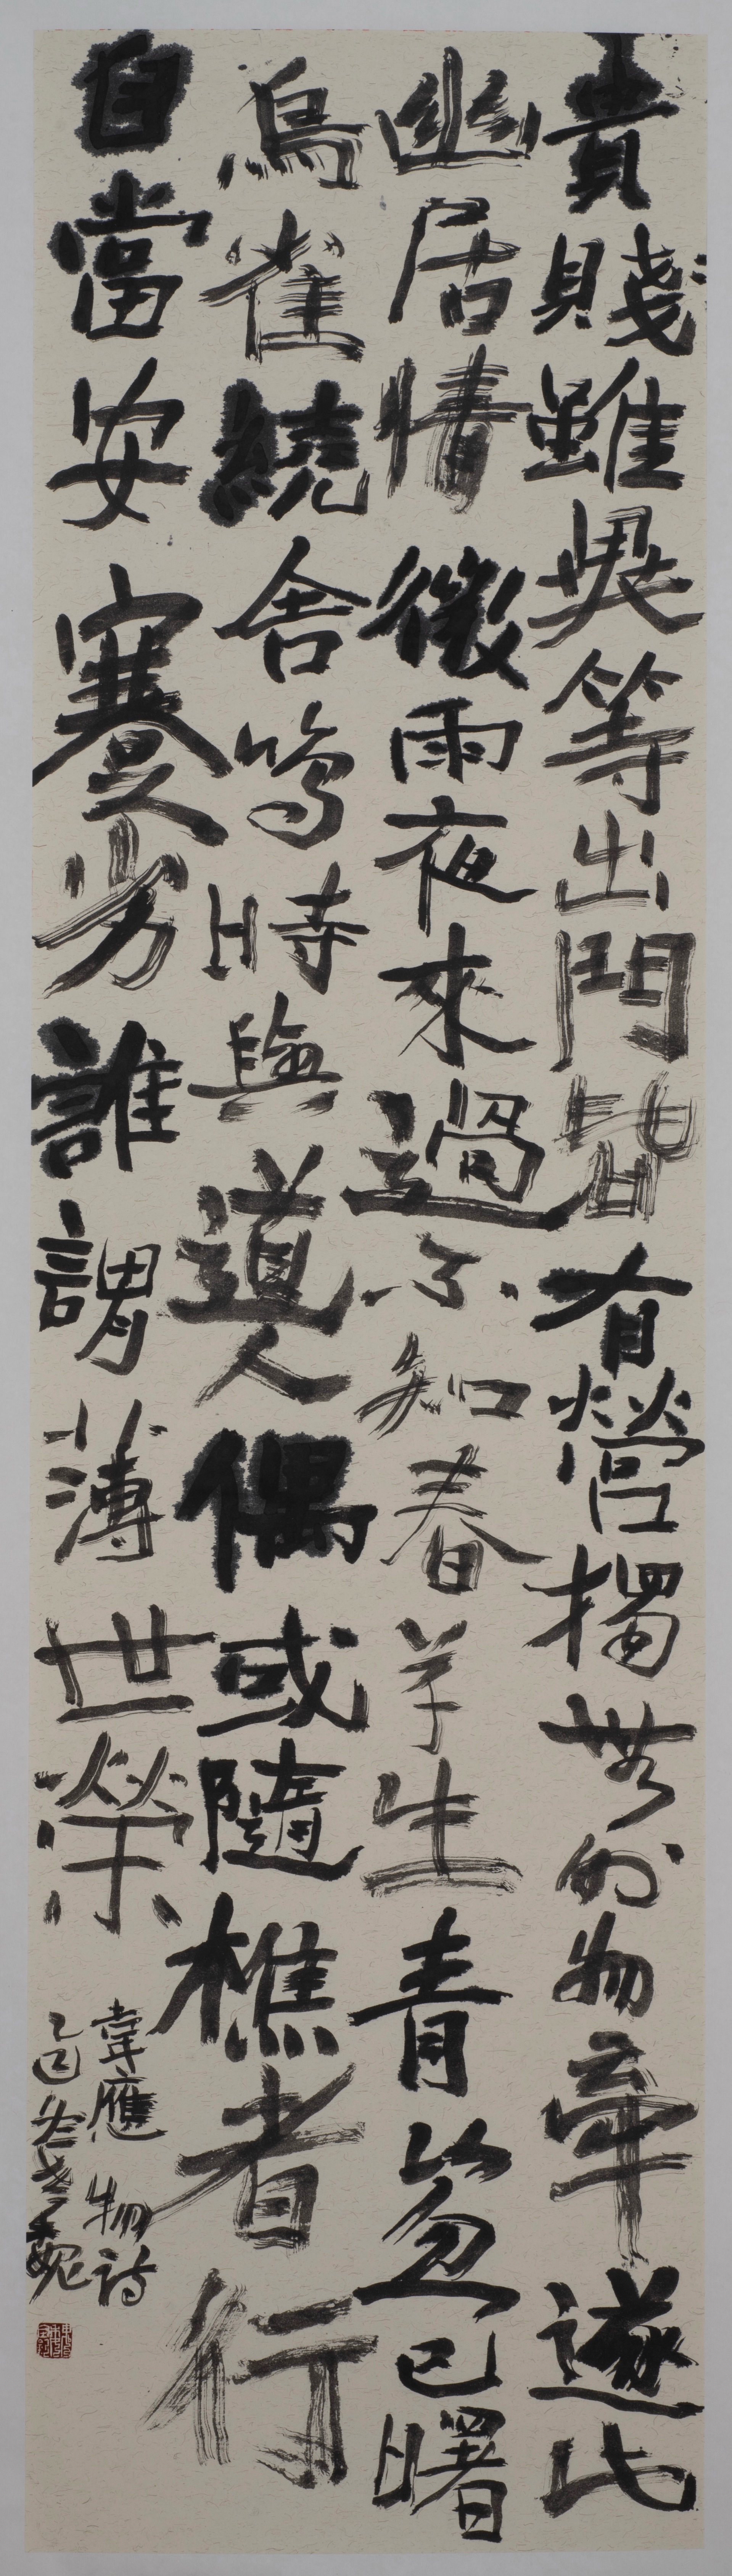 貴賤雖異等出門皆有營獨無外物牽遂此
幽居情微雨夜來過不知春草生青山忽已曙
鳥雀繞舍鳴時與道人偶或隨樵者行
自當安蹇劣誰謂薄世榮
韋應物詩
乙巳冬老魏